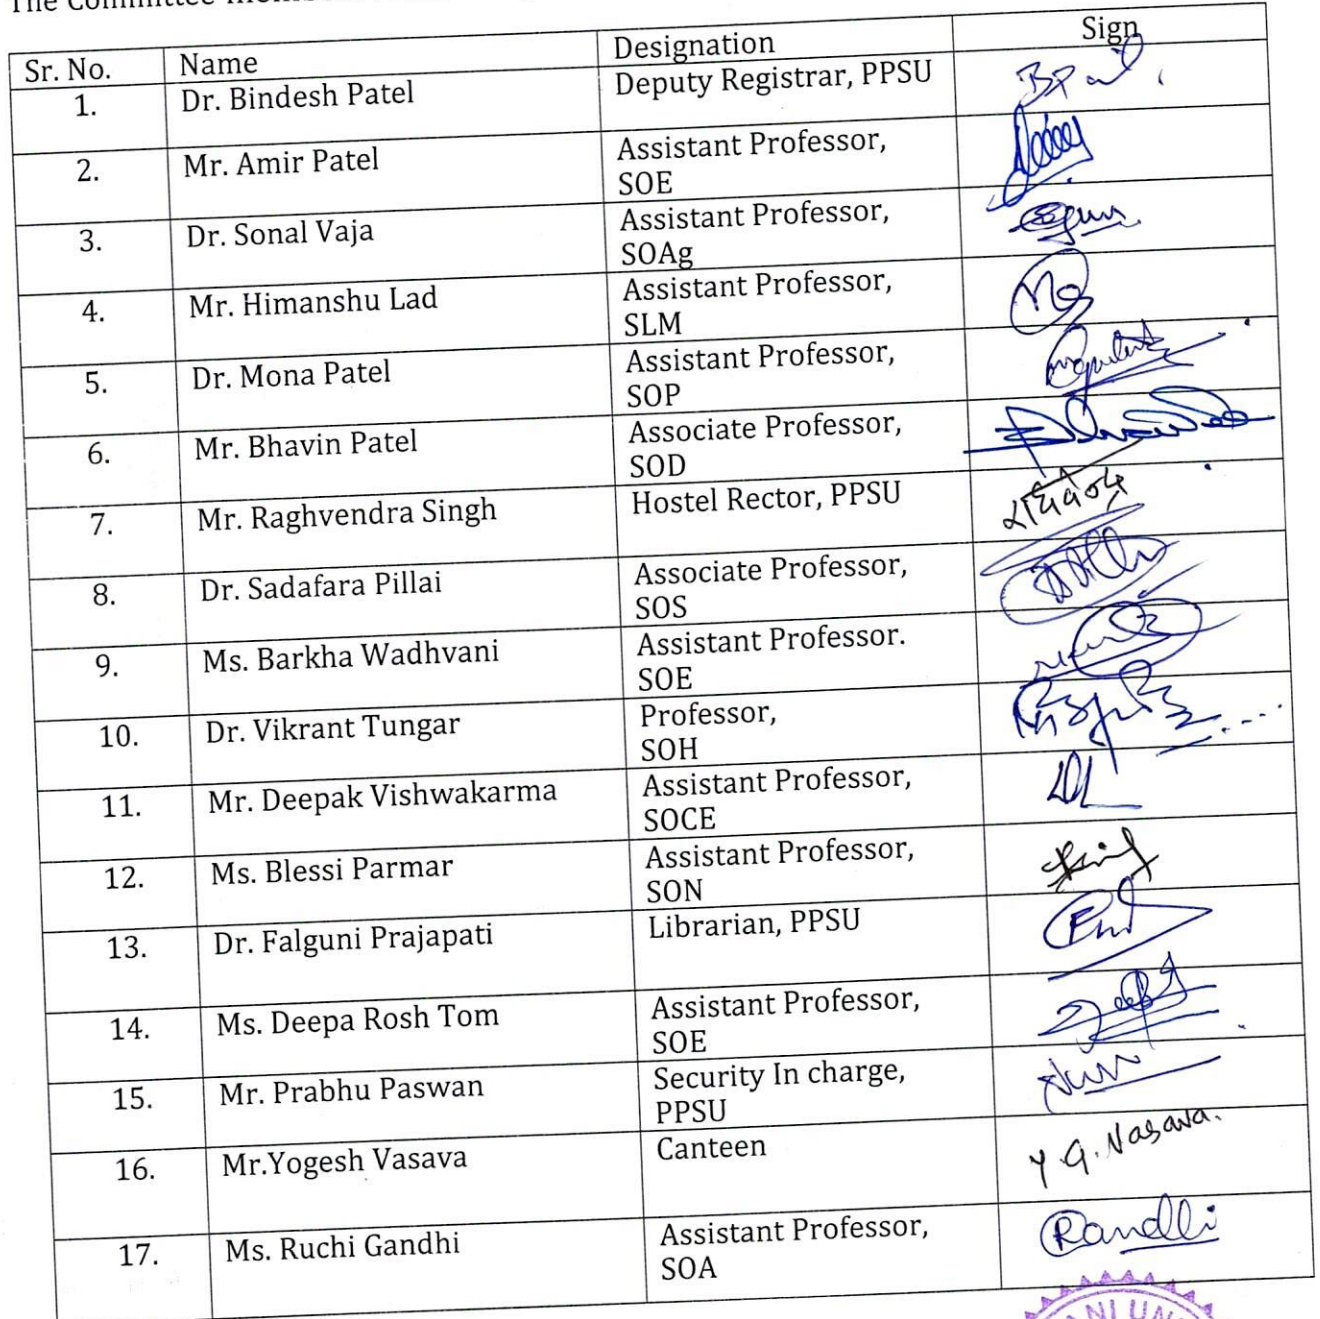 The Committee
Sr. No. Name Designation Sign
1. Dr. Bindesh Patel Deputy Registrar, PPSU
2. Mr. Amir Patel Assistant Professor,
SOE
3. Dr. Sonal Vaja Assistant Professor,
SOAg
4. Mr. Himanshu Lad Assistant Professor,
SLM
5. Dr. Mona Patel Assistant Professor,
SOP
6. Mr. Bhavin Patel Associate Professor,
SOD
7. Mr. Raghvendra Singh Hostel Rector, PPSU
8. Dr. Sadafara Pillai Associate Professor,
SOS
9. Ms. Barkha Wadhvani Assistant Professor.
SOE
10. Dr. Vikrant Tungar Professor,
SOH
11. Mr. Deepak Vishwakarma Assistant Professor,
SOCE
12. Ms. Blessi Parmar Assistant Professor,
SON
13. Dr. Falguni Prajapati Librarian, PPSU
14. Ms. Deepa Rosh Tom Assistant Professor,
SOE
15. Mr. Prabhu Paswan Security In charge,
PPSU
16. Mr.Yogesh Vasava Canteen Y. G. Vasava.
17. Ms. Ruchi Gandhi Assistant Professor,
SOA